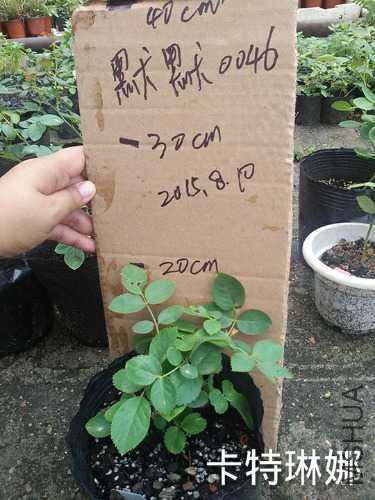 40cm
默默0046
30cm
2015.8.10
20cm
卡特琳娜